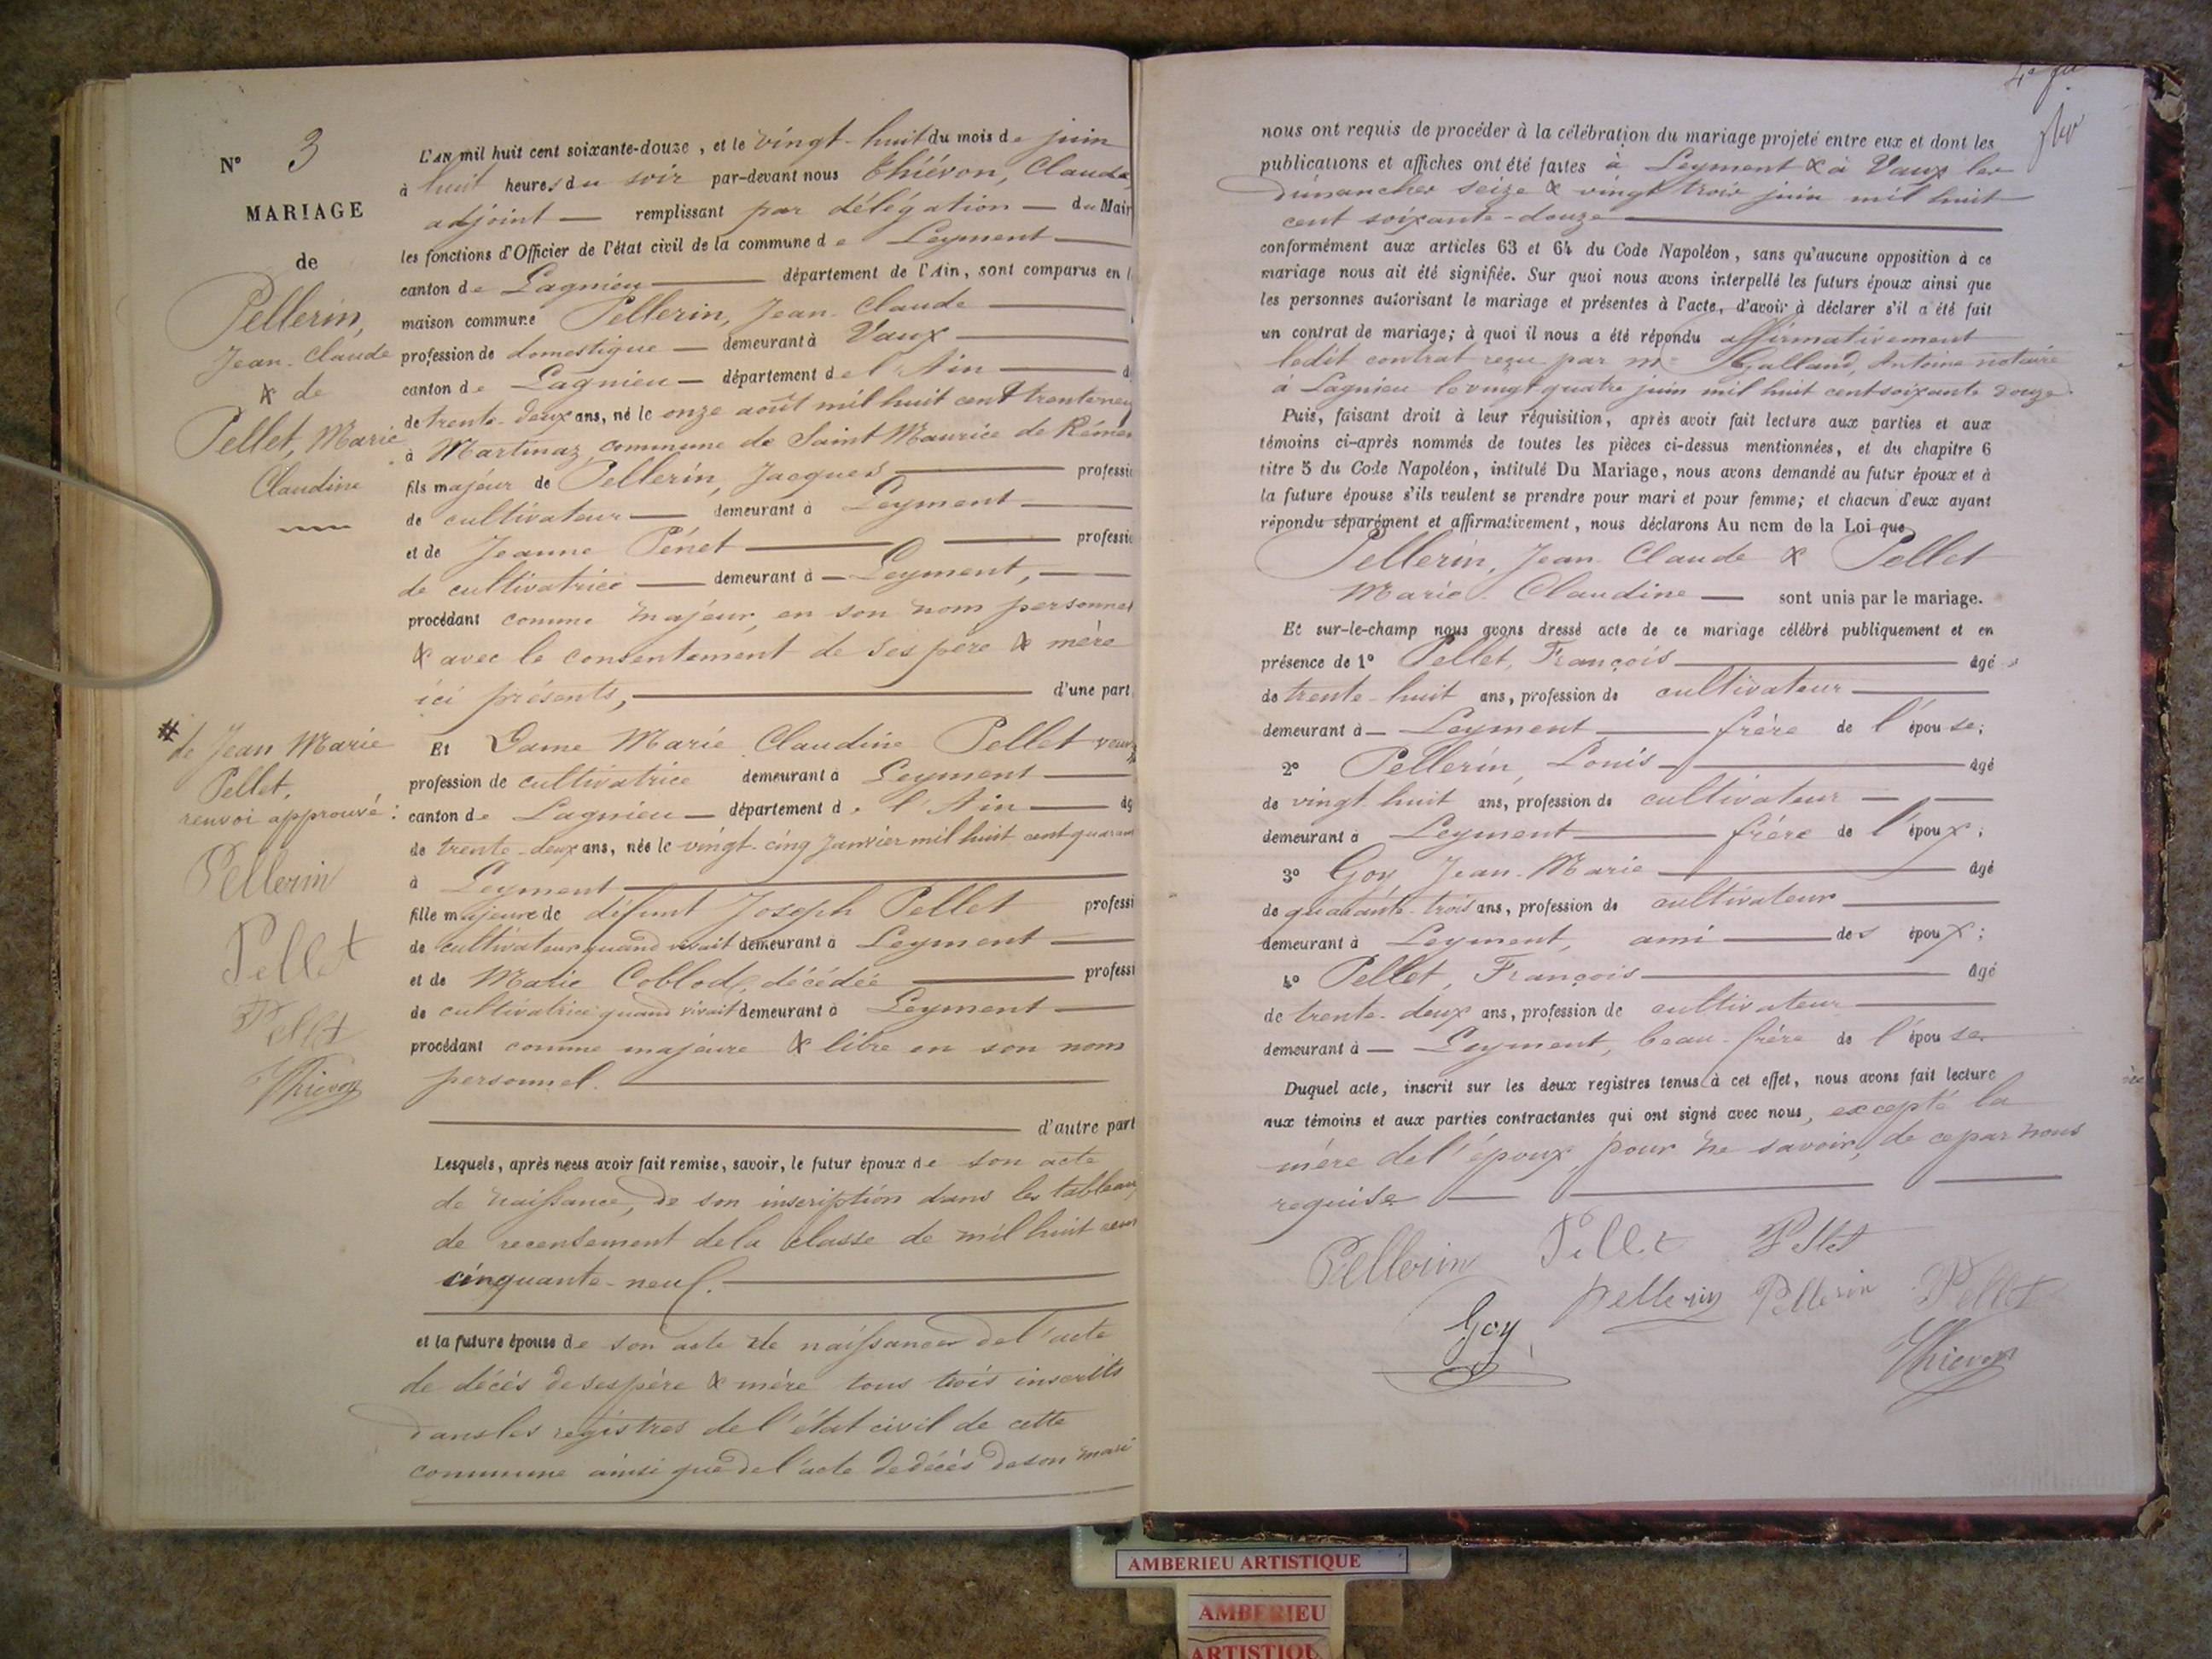 N° 3
MARIAGE
de
Pellerin,
Jean-Claude
& de
Pellet, Marie
Claudine
L'AN mil huit cent soixante-douze, et le vingt-huit du mois de juin
à huit heures du soir par-devant nous Thiévon, Claude,
adjoint — remplissant par délégation — du Mair
les fonctions d'Officier de l'état civil de la commune de Leyment
canton de Lagnieu — département de l'Ain, sont comparus en l
maison commune Pellerin, Jean-Claude
profession de domestique — demeurant à Vaux
canton de Lagnieu — département de l'Ain
de trente-deux ans, né le onze août mil huit cent trente neu
à Martinaz, commune de Saint Maurice de Rémen
fils majeur de Pellerin, Jacques — professio
de cultivateur — demeurant à Leyment
et de Jeanne Pénet — professio
de cultivatrice — demeurant à — Leyment,
procédant comme majeur, en son nom personnel
& avec le consentement de ses père & mère
ici présents, — d'une part
# de Jean Marie
Pellet,
renvoi approuvé :
Pellerin
Pellet
Pellet
Thievon
Et Dame Marie Claudine Pellet veuve #
profession de cultivatrice demeurant à Leyment
canton de Lagnieu — département de l'Ain — âg
de trente-deux ans, née le vingt-cinq janvier mil huit cent quaran
à Leyment
fille majeure de défunt Joseph Pellet professi
de cultivateur quand vivait demeurant à Leyment
et de Marie Coblod, décédée — professi
de cultivatrice quand vivait demeurant à Leyment
procédant comme majeure & libre en son nom
personnel.
d'autre part
Lesquels, après nous avoir fait remise, savoir, le futur époux de son acte
de naissance, de son inscription dans les tableaux
de recensement de la classe de mil huit cent
cinquante-neuf.
et la future épouse de son acte de naissance de l'acte
de décès de ses père & mère tous trois inscrits
dans les registres de l'état civil de cette
commune ainsi que de l'acte de décès de son mari
nous ont requis de procéder à la célébration du mariage projeté entre eux et dont les
publications et affiches ont été faites à Leyment & à Vaux les
dimanches seize & vingt trois juin mil huit
cent soixante-douze
conformément aux articles 63 et 64 du Code Napoléon, sans qu'aucune opposition à ce
mariage nous ait été signifiée. Sur quoi nous avons interpellé les futurs époux ainsi que
les personnes autorisant le mariage et présentes à l'acte, d'avoir à déclarer s'il a été fait
un contrat de mariage; à quoi il nous a été répondu affirmativement
ledit contrat reçu par me Galland, Antoine notaire
à Lagnieu le vingt quatre juin mil huit cent soixante douze
Puis, faisant droit à leur réquisition, après avoir fait lecture aux parties et aux
témoins ci-après nommés de toutes les pièces ci-dessus mentionnées, et du chapitre 6
titre 5 du Code Napoléon, intitulé Du Mariage, nous avons demandé au futur époux et à
la future épouse s'ils veulent se prendre pour mari et pour femme; et chacun d'eux ayant
répondu séparément et affirmativement, nous déclarons Au nom de la Loi que
Pellerin, Jean Claude & Pellet
Marie-Claudine — sont unis par le mariage.
Et sur-le-champ nous avons dressé acte de ce mariage célébré publiquement et en
présence de 1° Pellet, François — âgé
de trente-huit ans, profession de cultivateur
demeurant à — Leyment — frère de l'épouse;
2° Pellerin, Louis — âgé
de vingt huit ans, profession de cultivateur
demeurant à Leyment — frère de l'époux;
3° Goy Jean-Marie — âgé
de quarante-trois ans, profession de cultivateur
demeurant à Leyment, ami — des époux;
4° Pellet, François — âgé
de trente-deux ans, profession de cultivateur
demeurant à — Leyment, beau-frère de l'épouse
Duquel acte, inscrit sur les deux registres tenus à cet effet, nous avons fait lecture
aux témoins et aux parties contractantes qui ont signé avec nous, excepté la
mère de l'époux, pour ne savoir, de ce par nous
requise
Pellerin Pellet Pellet
Pellerin Pellerin Pellet
Goy
Thievon
AMBERIEU ARTISTIQUE
AMBERIEU
ARTISTIQU